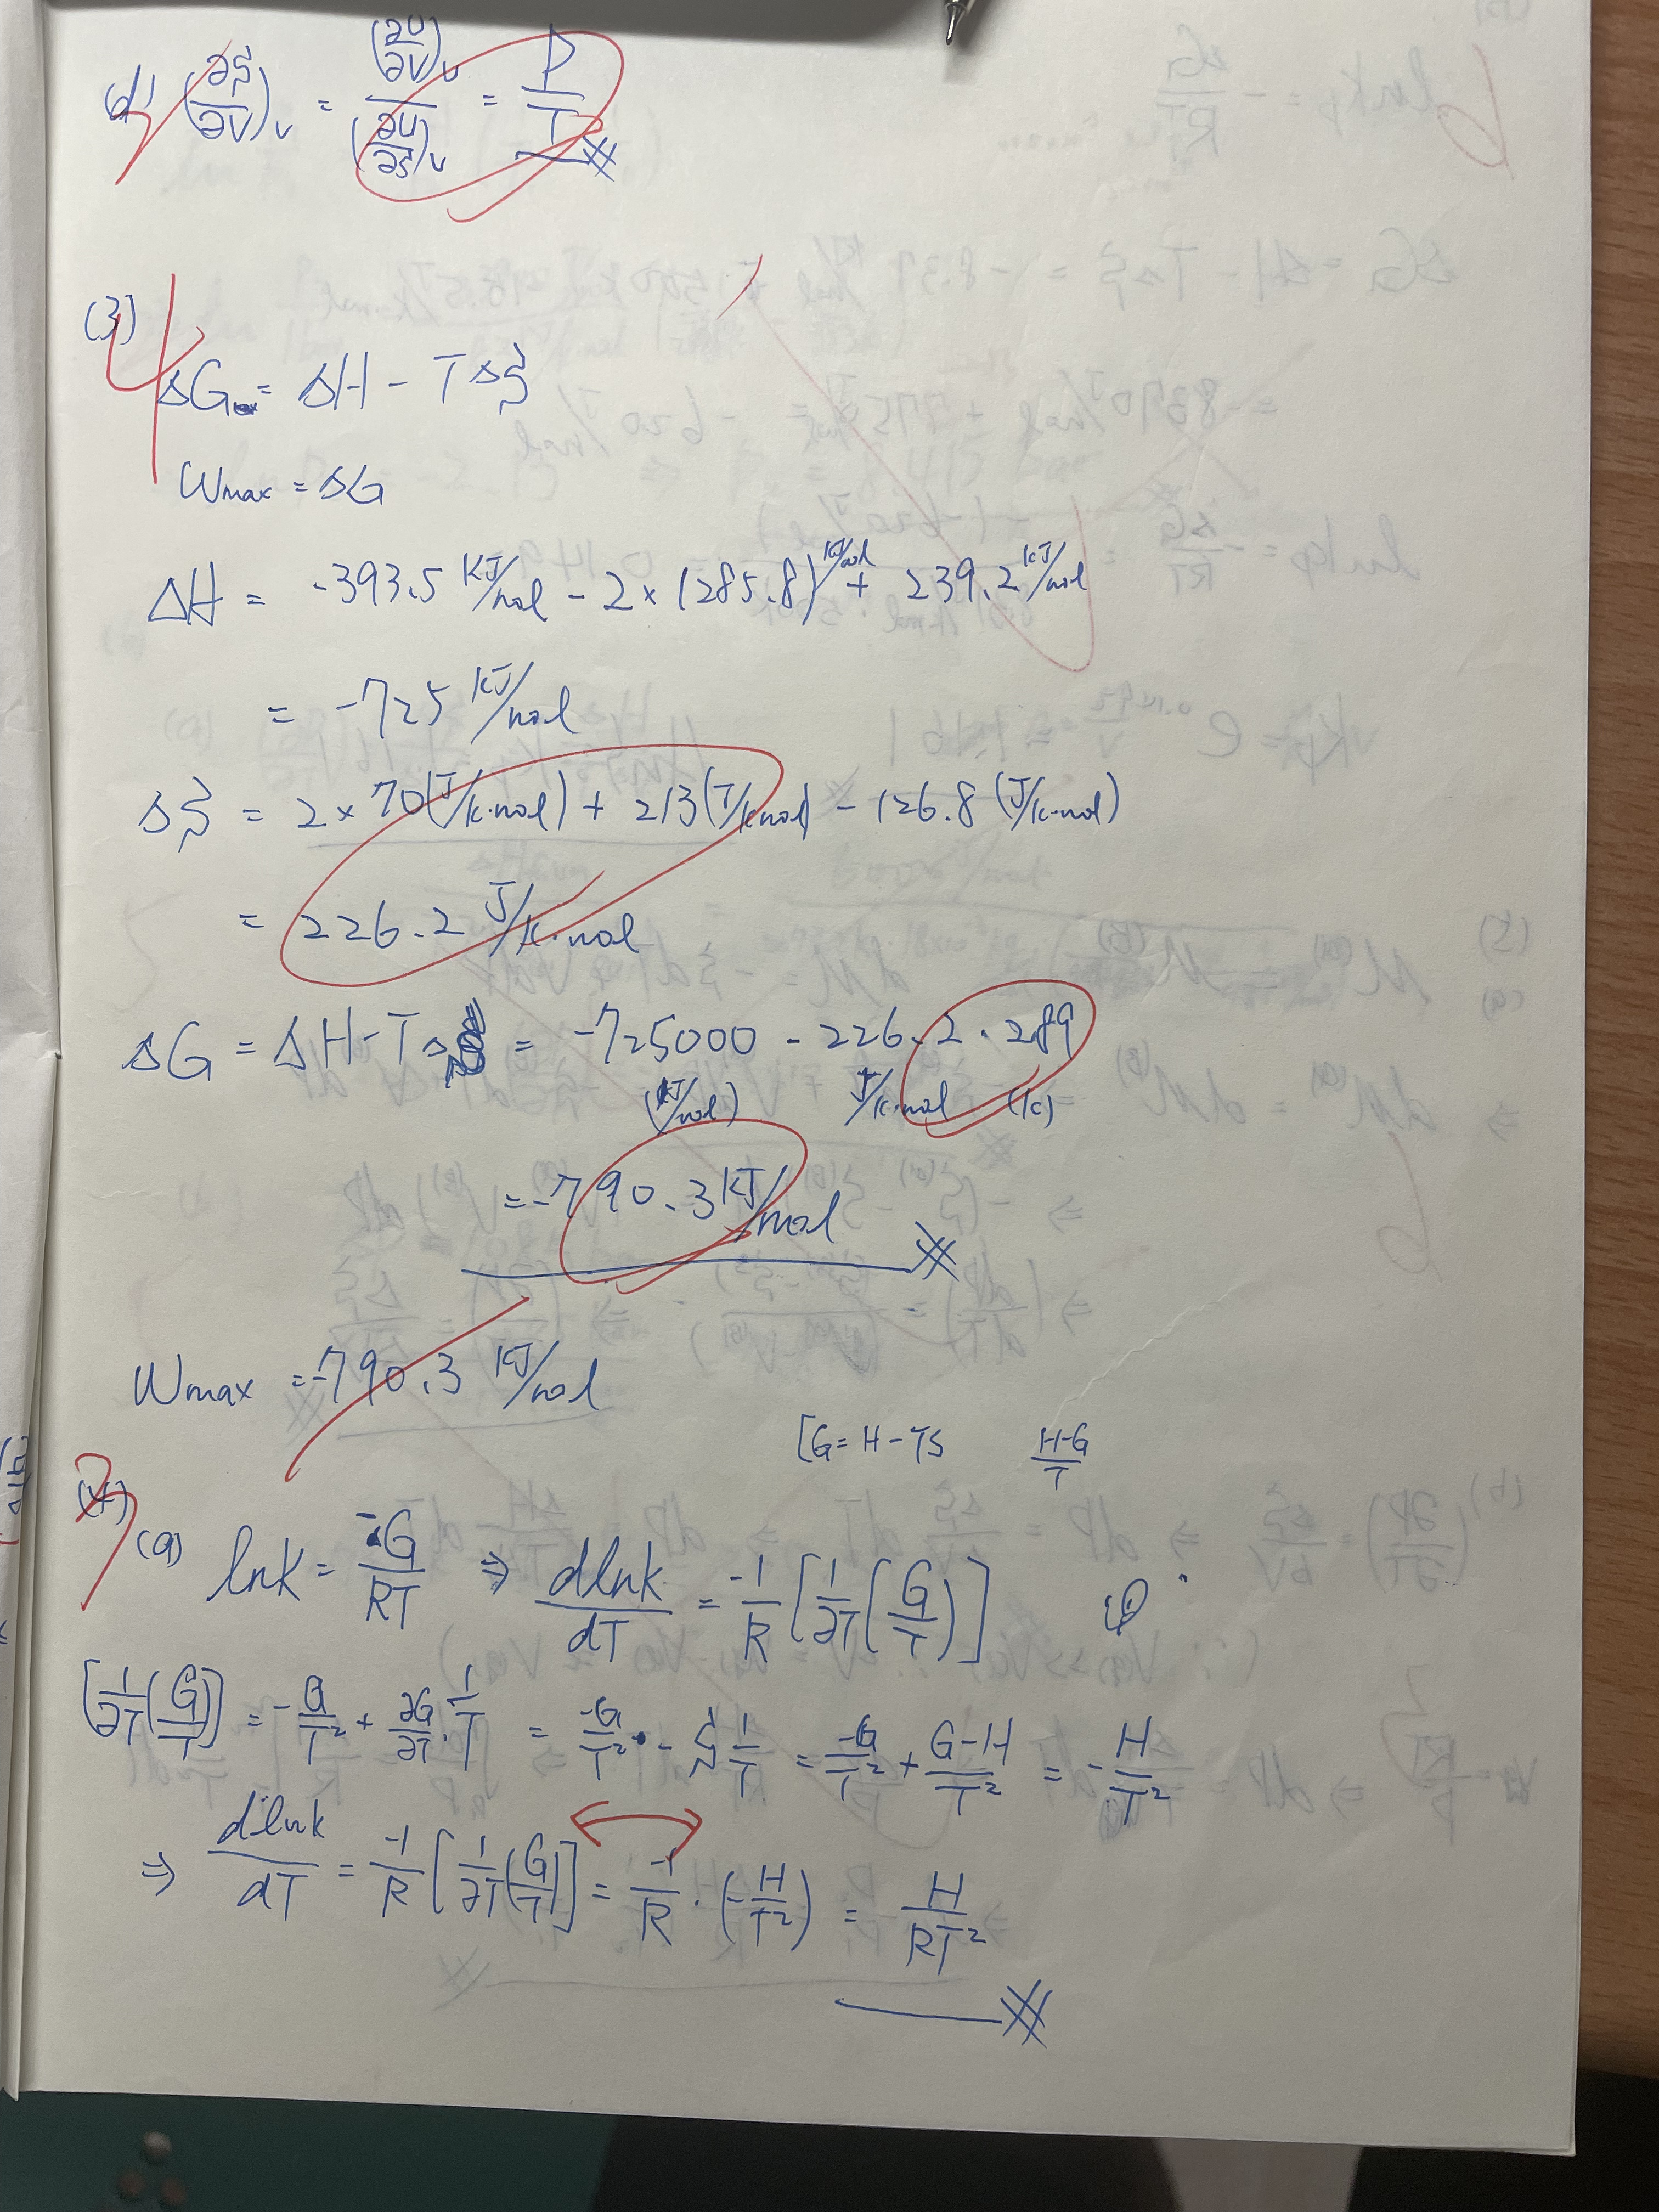 d) (∂S/∂V)_U = (∂U/∂V)_U / (∂U/∂S)_V = P/T
(3)
ΔG = ΔH - TΔS
Wmax = ΔG
ΔH = -393.5 KJ/mol - 2×(285.8) KJ/mol + 239.2 KJ/mol
= -725 KJ/mol
ΔS = 2×70(J/k·mol) + 213(J/k·mol) - 126.8(J/k·mol)
= 226.2 J/k·mol
ΔG = ΔH-TΔS = -725000 - 226.2 · 289
(J/mol) J/k·mol (k)
= -790.3 KJ/mol
Wmax = -790.3 KJ/mol
[G = H-TS H-G/T
(4)
(a) lnk = -G/RT ⇒ dlnk/dT = -1/R [1/∂T (G/T)]
[1/∂T (G/T)] = -G/T² + ∂G/∂T · 1/T = -G/T² - S 1/T = -G/T² + G-H/T² = -H/T²
⇒ dlnk/dT = -1/R [1/∂T (G/T)] = -1/R · (-H/T²) = H/RT²